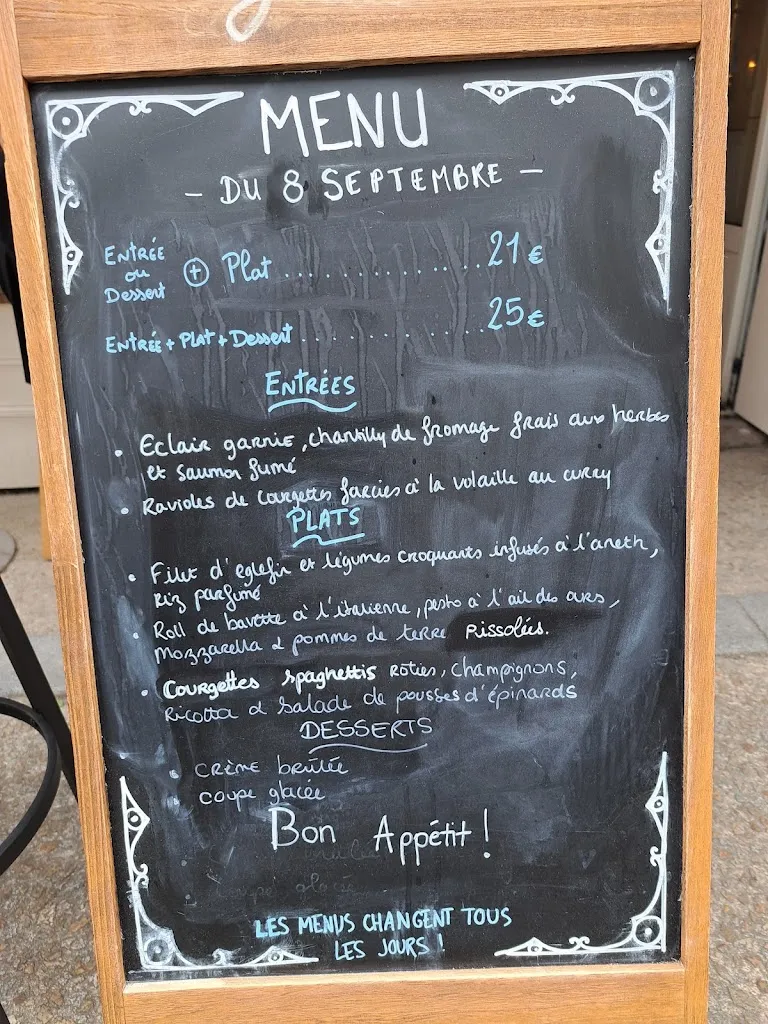 MENU
- DU 8 SEPTEMBRE -
ENTRÉE
ou
Dessert
+ Plat .............. 21 €
ENTRÉE + PLAT + Dessert .............. 25 €
ENTRÉES
• Eclair garnie, chantilly de fromage frais aux herbes
et saumon fumé
• Ravioles de courgettes farcies à la volaille au curry
PLATS
• Filet d'eglefin et légumes croquants infusés à l'aneth,
Riz parfumé
• Roll de bavette à l'italienne, pesto à l'ail des ours,
Mozzarella & pommes de terre Rissolées.
• Courgettes spaghettis Roties, Champignons,
Ricotta & salade de pousses d'épinards
DESSERTS
• CRÈME brûlée
coupe glacée
Bon Appétit !
LES MENUS CHANGENT TOUS
LES JOURS !